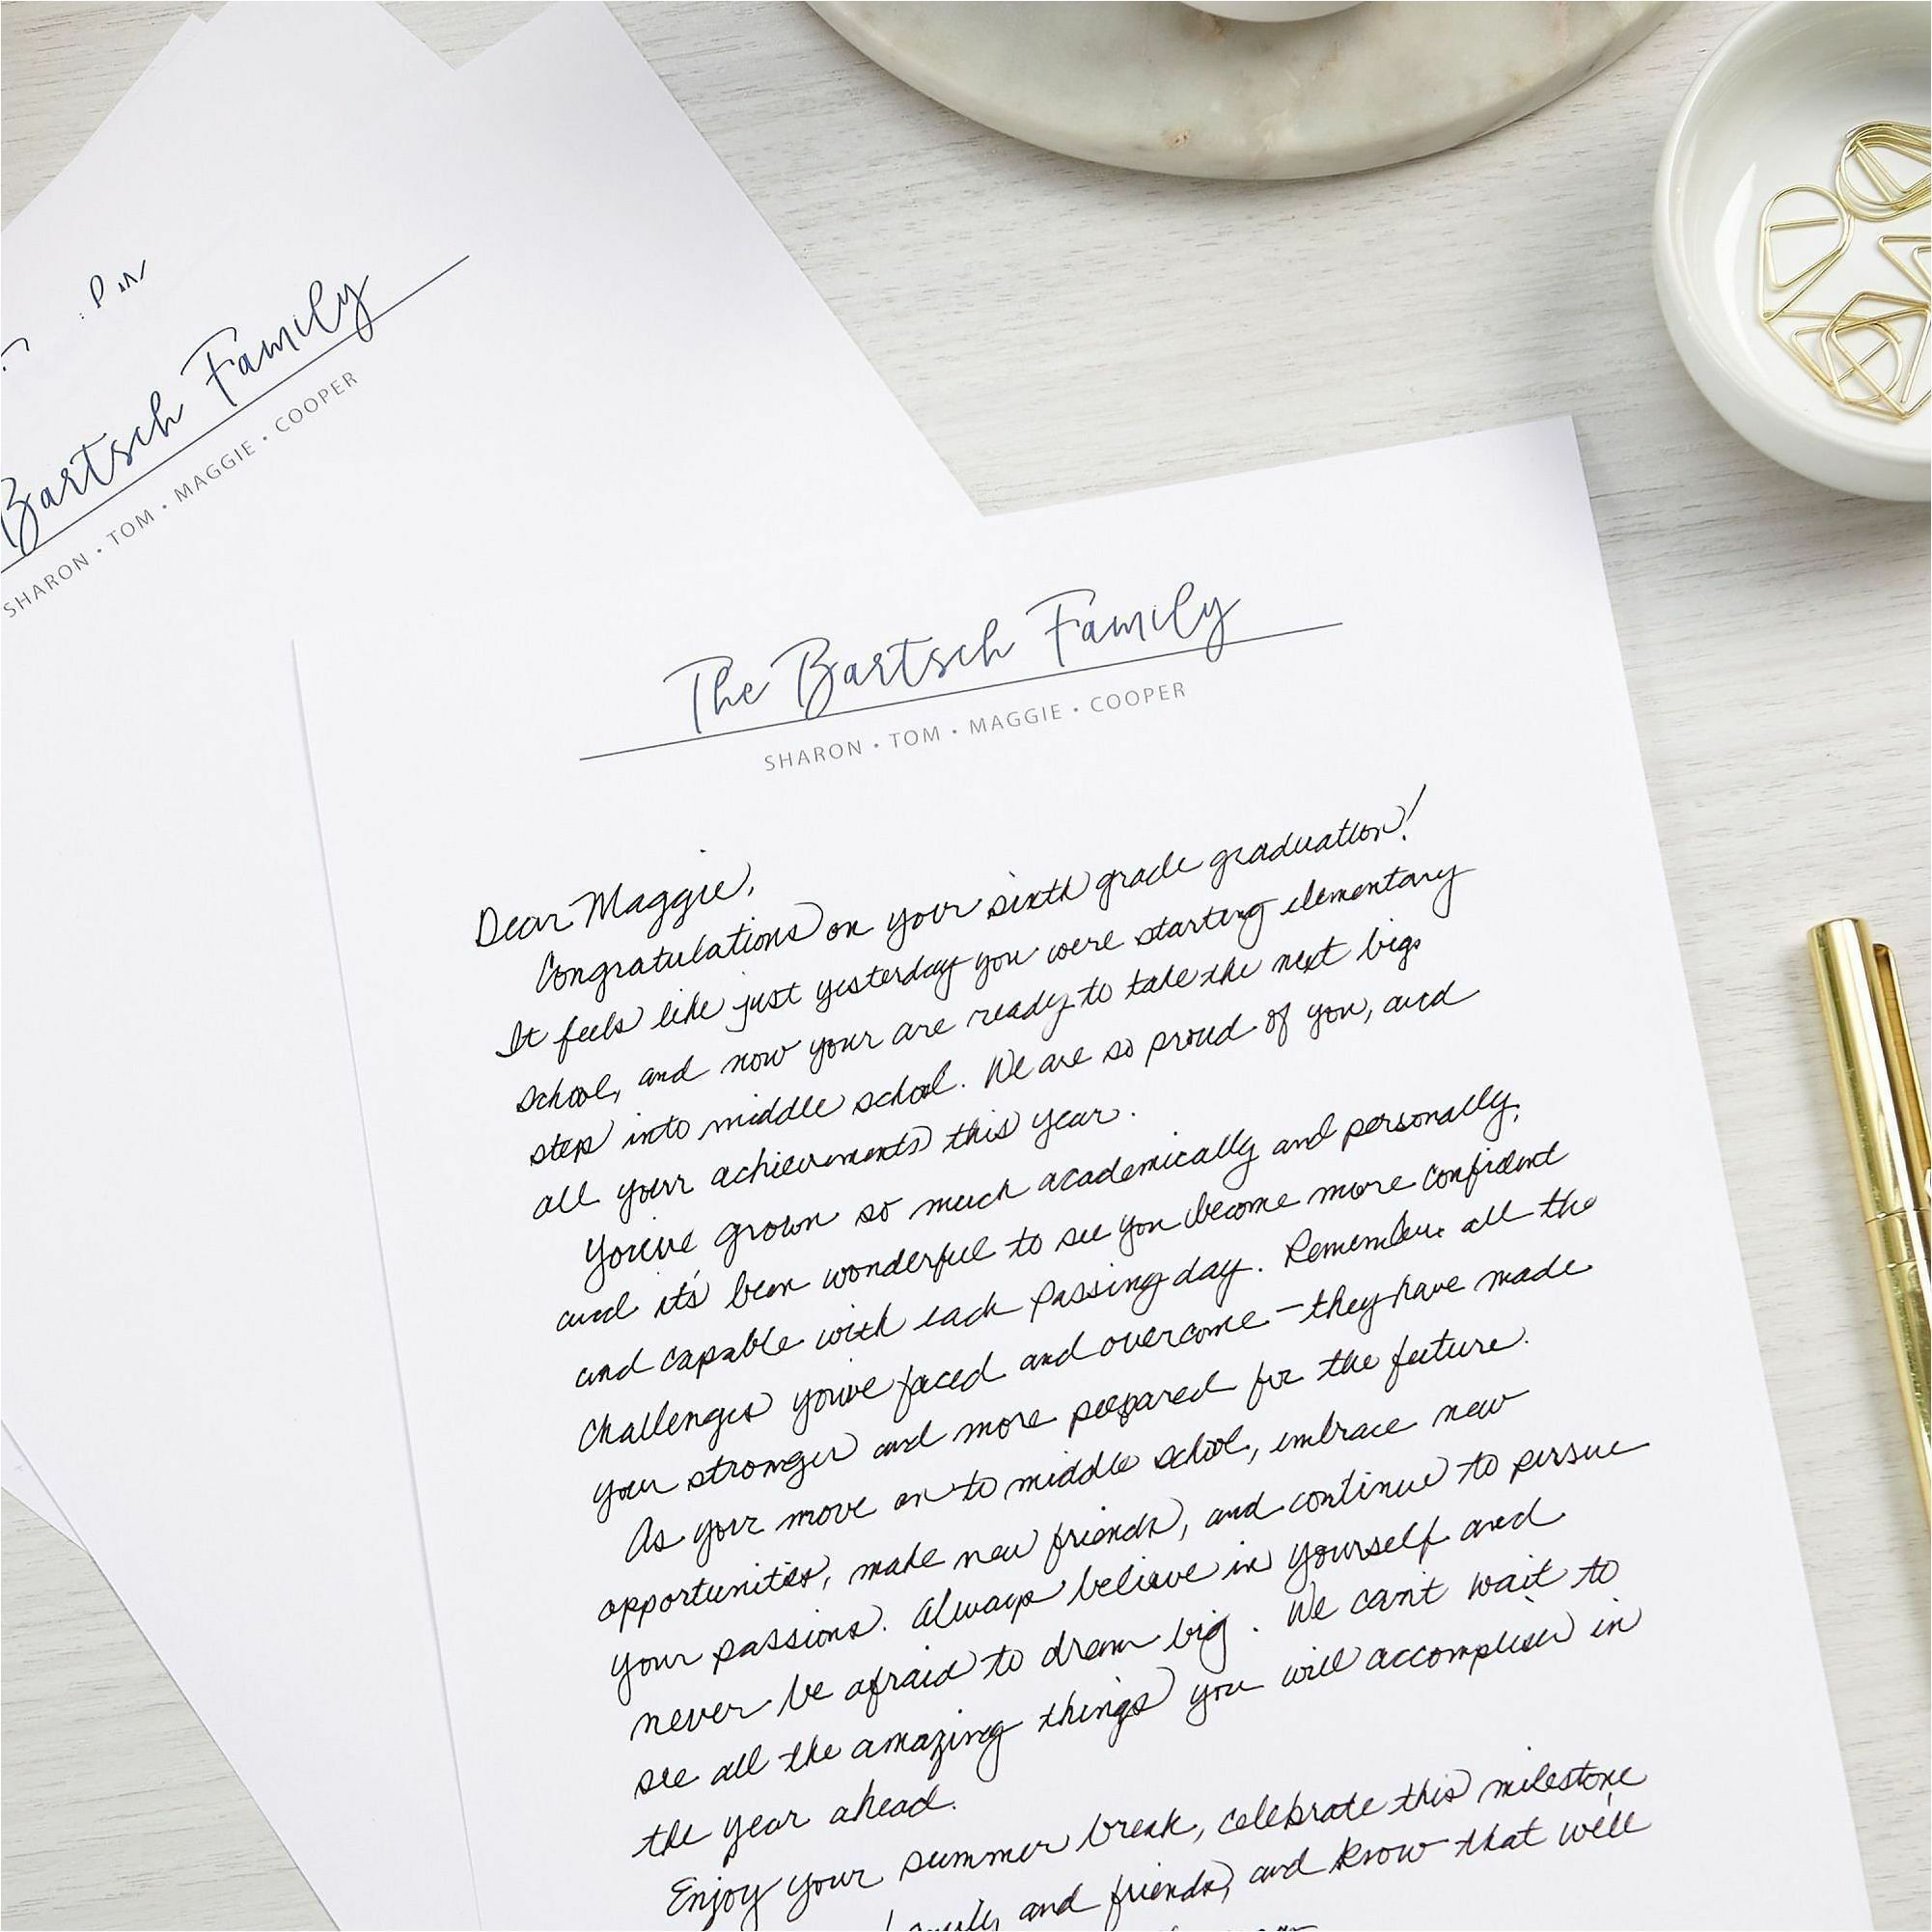 Bartsch Family
SHARON • TOM • MAGGIE • COOPER
The Bartsch Family
SHARON • TOM • MAGGIE • COOPER
Dear Maggie,
Congratulations on your sixth grade graduation!
It feels like just yesterday you were starting elementary
school, and now your are ready to take the next big
step into middle school. We are so proud of you, and
all your achievements this year.
You've grown so much academically and personally,
and it's been wonderful to see you become more confident
and capable with each passing day. Remember all the
challenges you've faced and overcome – they have made
you stronger and more prepared for the future.
As your move on to middle school, embrace new
opportunities, make new friends, and continue to persue
your passions. Always believe in yourself and
never be afraid to dream big. We can't wait to
see all the amazing things you will accomplish in
the year ahead.
Enjoy your summer break, celebrate this milestone
family and friends, and know that we'll